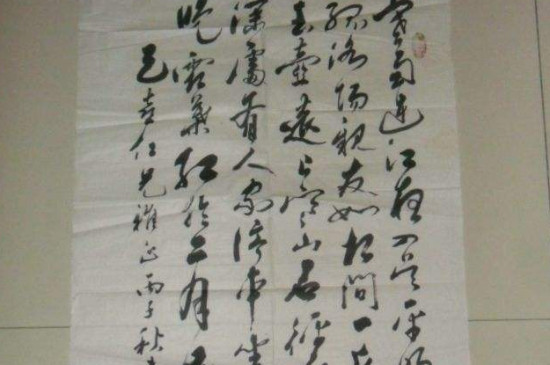 寒雨连江夜入吴平明
孤洛阳亲友如相问一片
玉壶远上寒山石径
深处有人家停车坐
晚霜叶红于二月花
仁兄雅正丙子秋